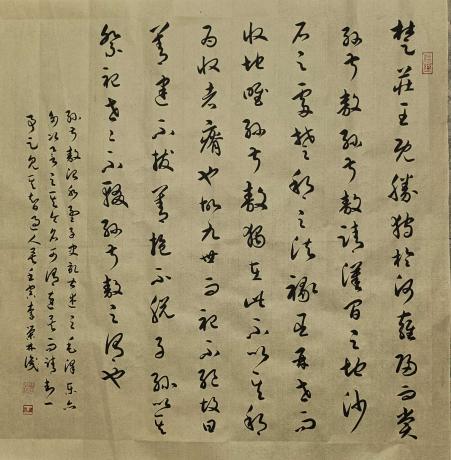 楚莊王既勝狩於河雍歸而賞
孫叔敖孫叔敖請漢間之地沙
石之處楚邦之法祿臣再世而
收地唯孫叔敖獨在此不以其邦
為收者瘠也故九世而祀不絕故曰
善建不拔善抱不脫子孫以其
祭祀世世不輟孫叔敖之謂也
孫叔敖治水 史記有述之毛澤東亦